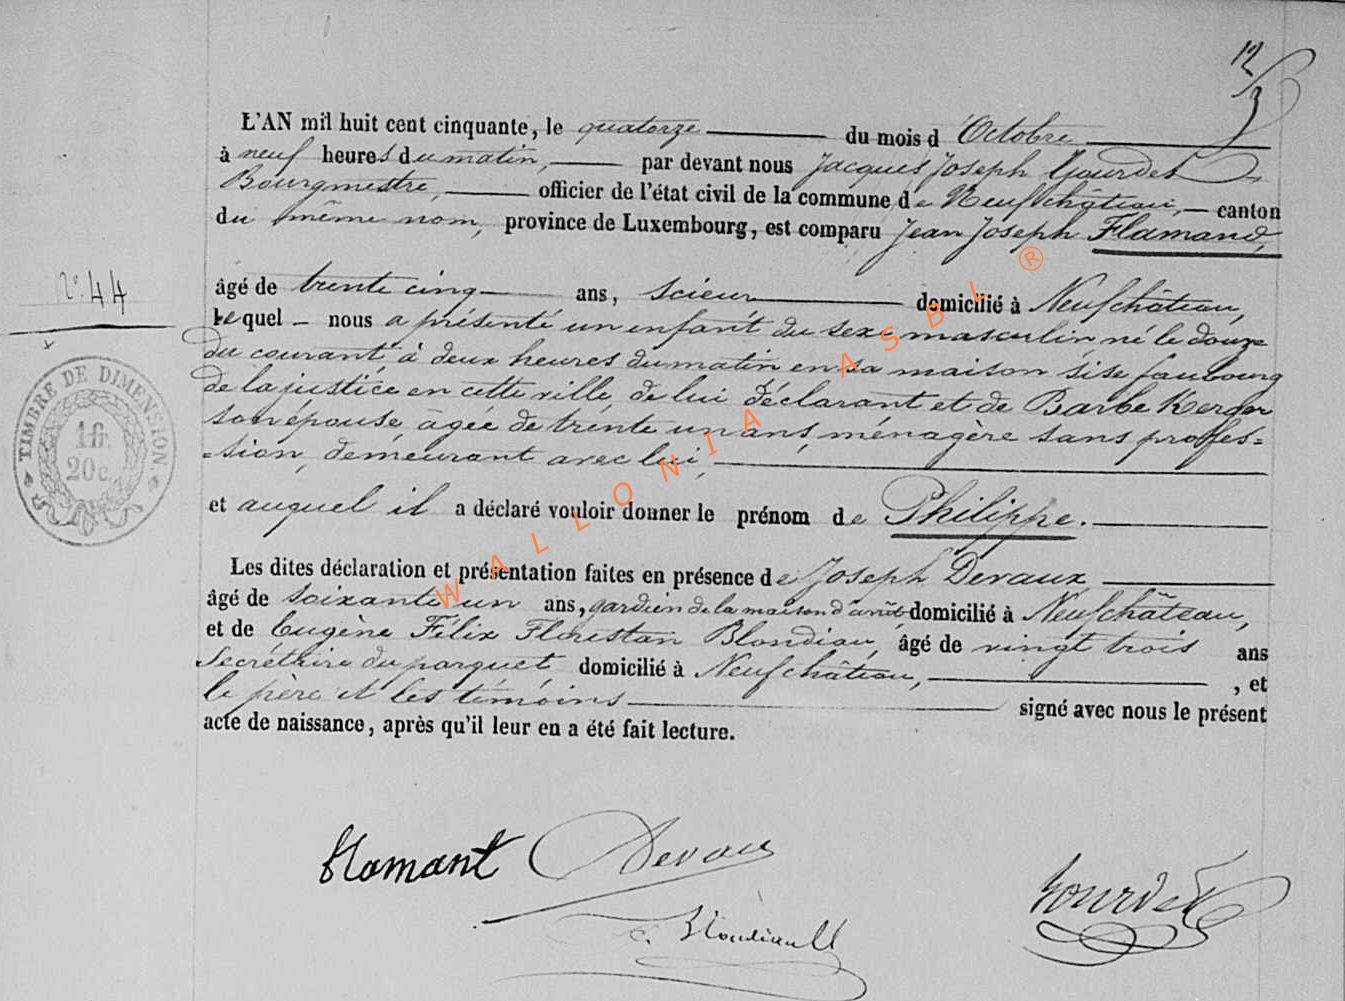 12
L'AN mil huit cent cinquante, le quatorze du mois d Octobre
à neuf heures du matin, par devant nous Jacques Joseph Gourdet
Bourgmestre, officier de l'état civil de la commune de Neufchâteau, canton
du même nom, province de Luxembourg, est comparu Jean Joseph Flamand,
N° 44
âgé de trente cinq ans, scieur domicilié à Neufchâteau,
lequel nous a présenté un enfant du sexe masculin, né le douze
du courant, à deux heures du matin en sa maison sise faubourg
de la justice en cette ville, de lui déclarant et de Barbe Kerger
son épouse, âgée de trente un ans, ménagère sans profes=
=sion, demeurant avec lui,
et auquel il a déclaré vouloir donner le prénom de Philippe.
TIMBRE DE DIMENSION.
1 fr.
20 c.
Les dites déclaration et présentation faites en présence de Joseph Devaux
âgé de soixante un ans, gardien de la maison d'arrêt domicilié à Neufchâteau,
et de Eugène Félix Florestan Blondiau, âgé de vingt trois ans
Secrétaire du parquet, domicilié à Neufchâteau, , et
le père et les témoins signé avec nous le présent
acte de naissance, après qu'il leur en a été fait lecture.
flamant Devaux
Gourdet
Blondiau
WALLONIA ASBL ®